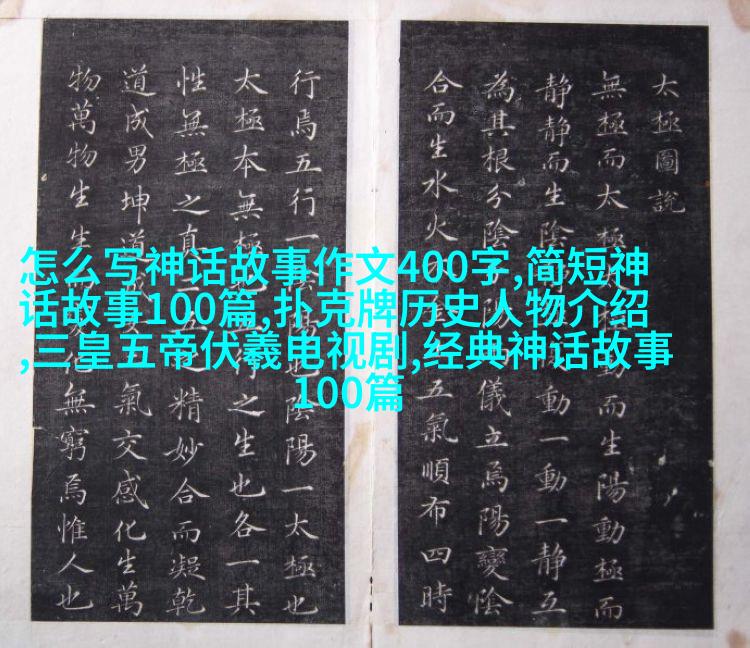 怎么写神话故事作文400字,简短神
话故事100篇,扑克牌历史人物介绍
,三皇五帝伏羲电视剧,经典神话故事
100篇
太極圖說
無極而太極動而生陽動極而
靜靜而生陰動一動一靜互
為其根分陰陽儀立焉陽變陰
合而生水火五氣順布四時
行焉五行一陰陽也陰陽一太極也
太極本無極之生也各一其
性無極之真二五之精妙合而凝乾
道成男坤道成氣交感化生萬
物萬物生生化無窮焉惟人也